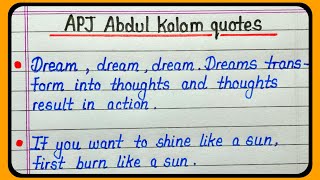 APJ Abdul Kalam quotes
Dream, dream, dream. Dreams trans-
form into thoughts and thoughts
result in action.
If you want to shine like a sun,
first burn like a sun.